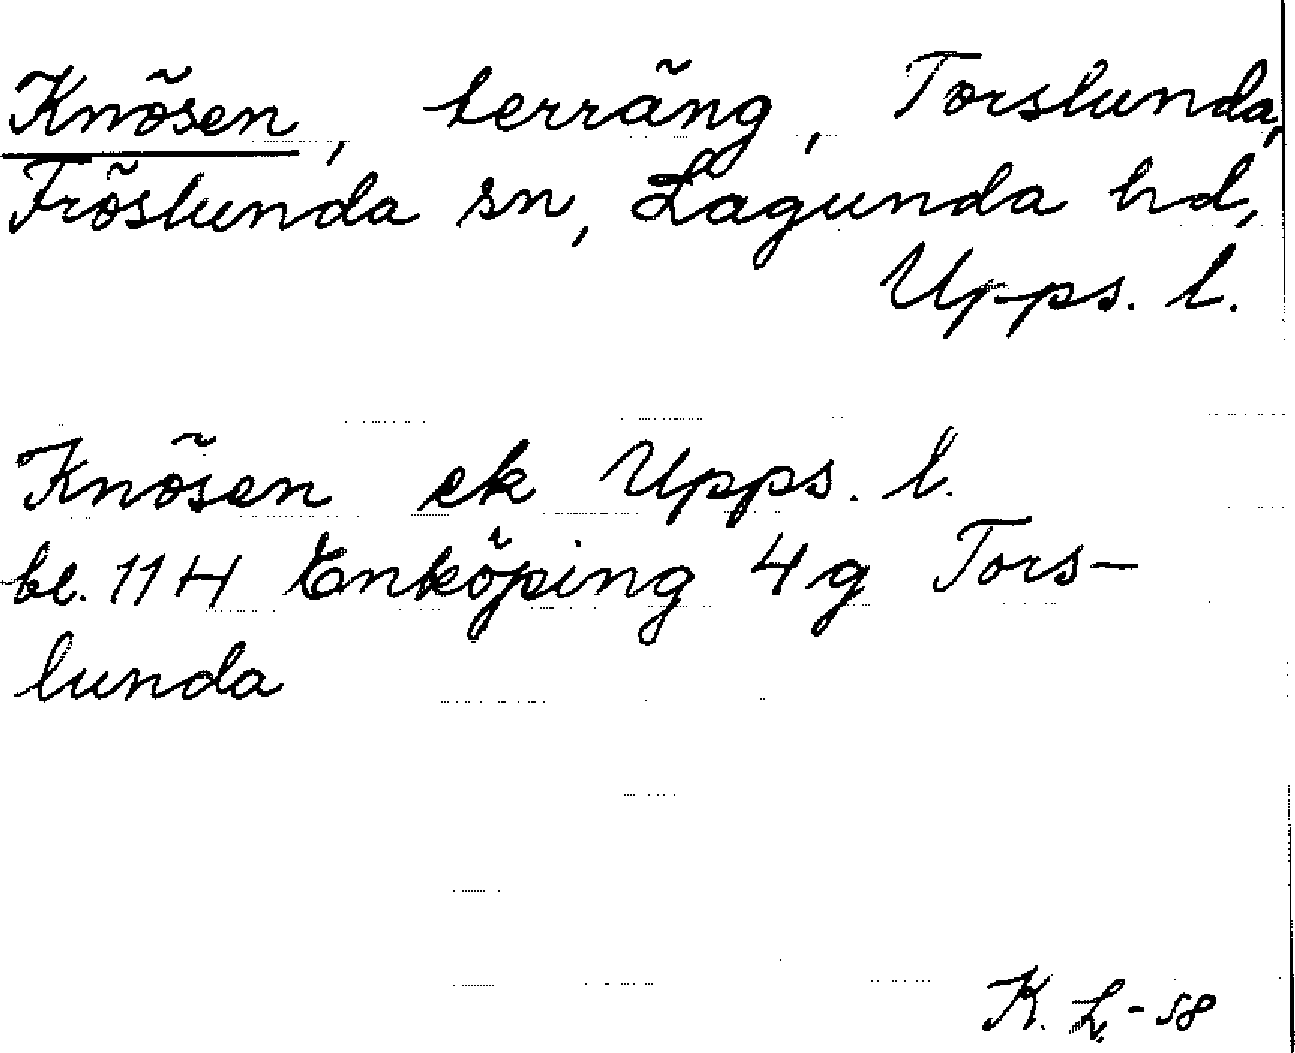 Knösen, terräng, Torslunda,
Fröslunda sn, Lagunda hd,
Upps. l.
Knösen ek Upps. l.
bl. 11H Enköping 4g Tors-
lunda
K. L. - 58